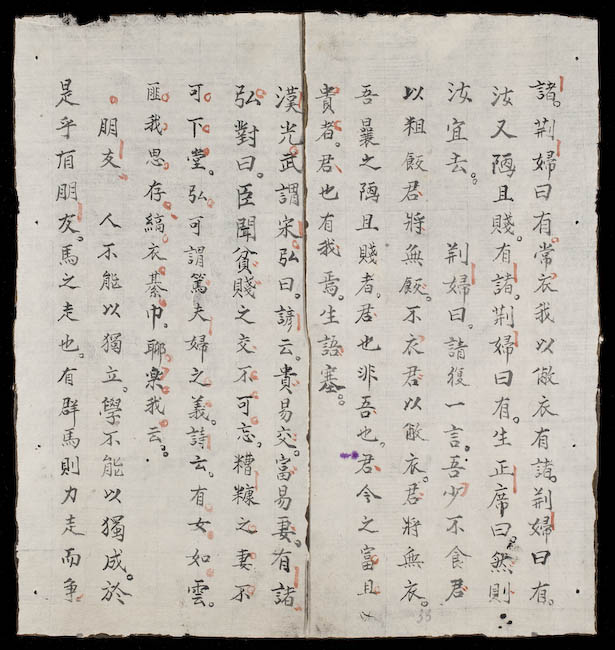 諸。荆婦曰有。常衣我以敝衣有諸。荆婦曰有。
汝又陋且賤。有諸。荆婦曰有。生正席曰。然則
汝宜去。荆婦曰。請復一言。吾少不食君
以粗飯君將無飯。不衣君以敝衣。君將無衣。
吾曩之陋且賤者。君也非吾也。君今之富且
貴者。君也有我焉。生語塞。
漢光武謂宋弘曰。諺云。貴易交。富易妻。有諸
弘對曰。臣聞貧賤之交不可忘。糟糠之妻不
可下堂。弘可謂篤夫婦之義。詩云。有女如雲。
匪我思存縞衣綦巾。聊樂我云。
朋友 人不能以獨立。學不能以獨成。於
是乎有朋友。馬之走也。有群馬則力走而爭
35